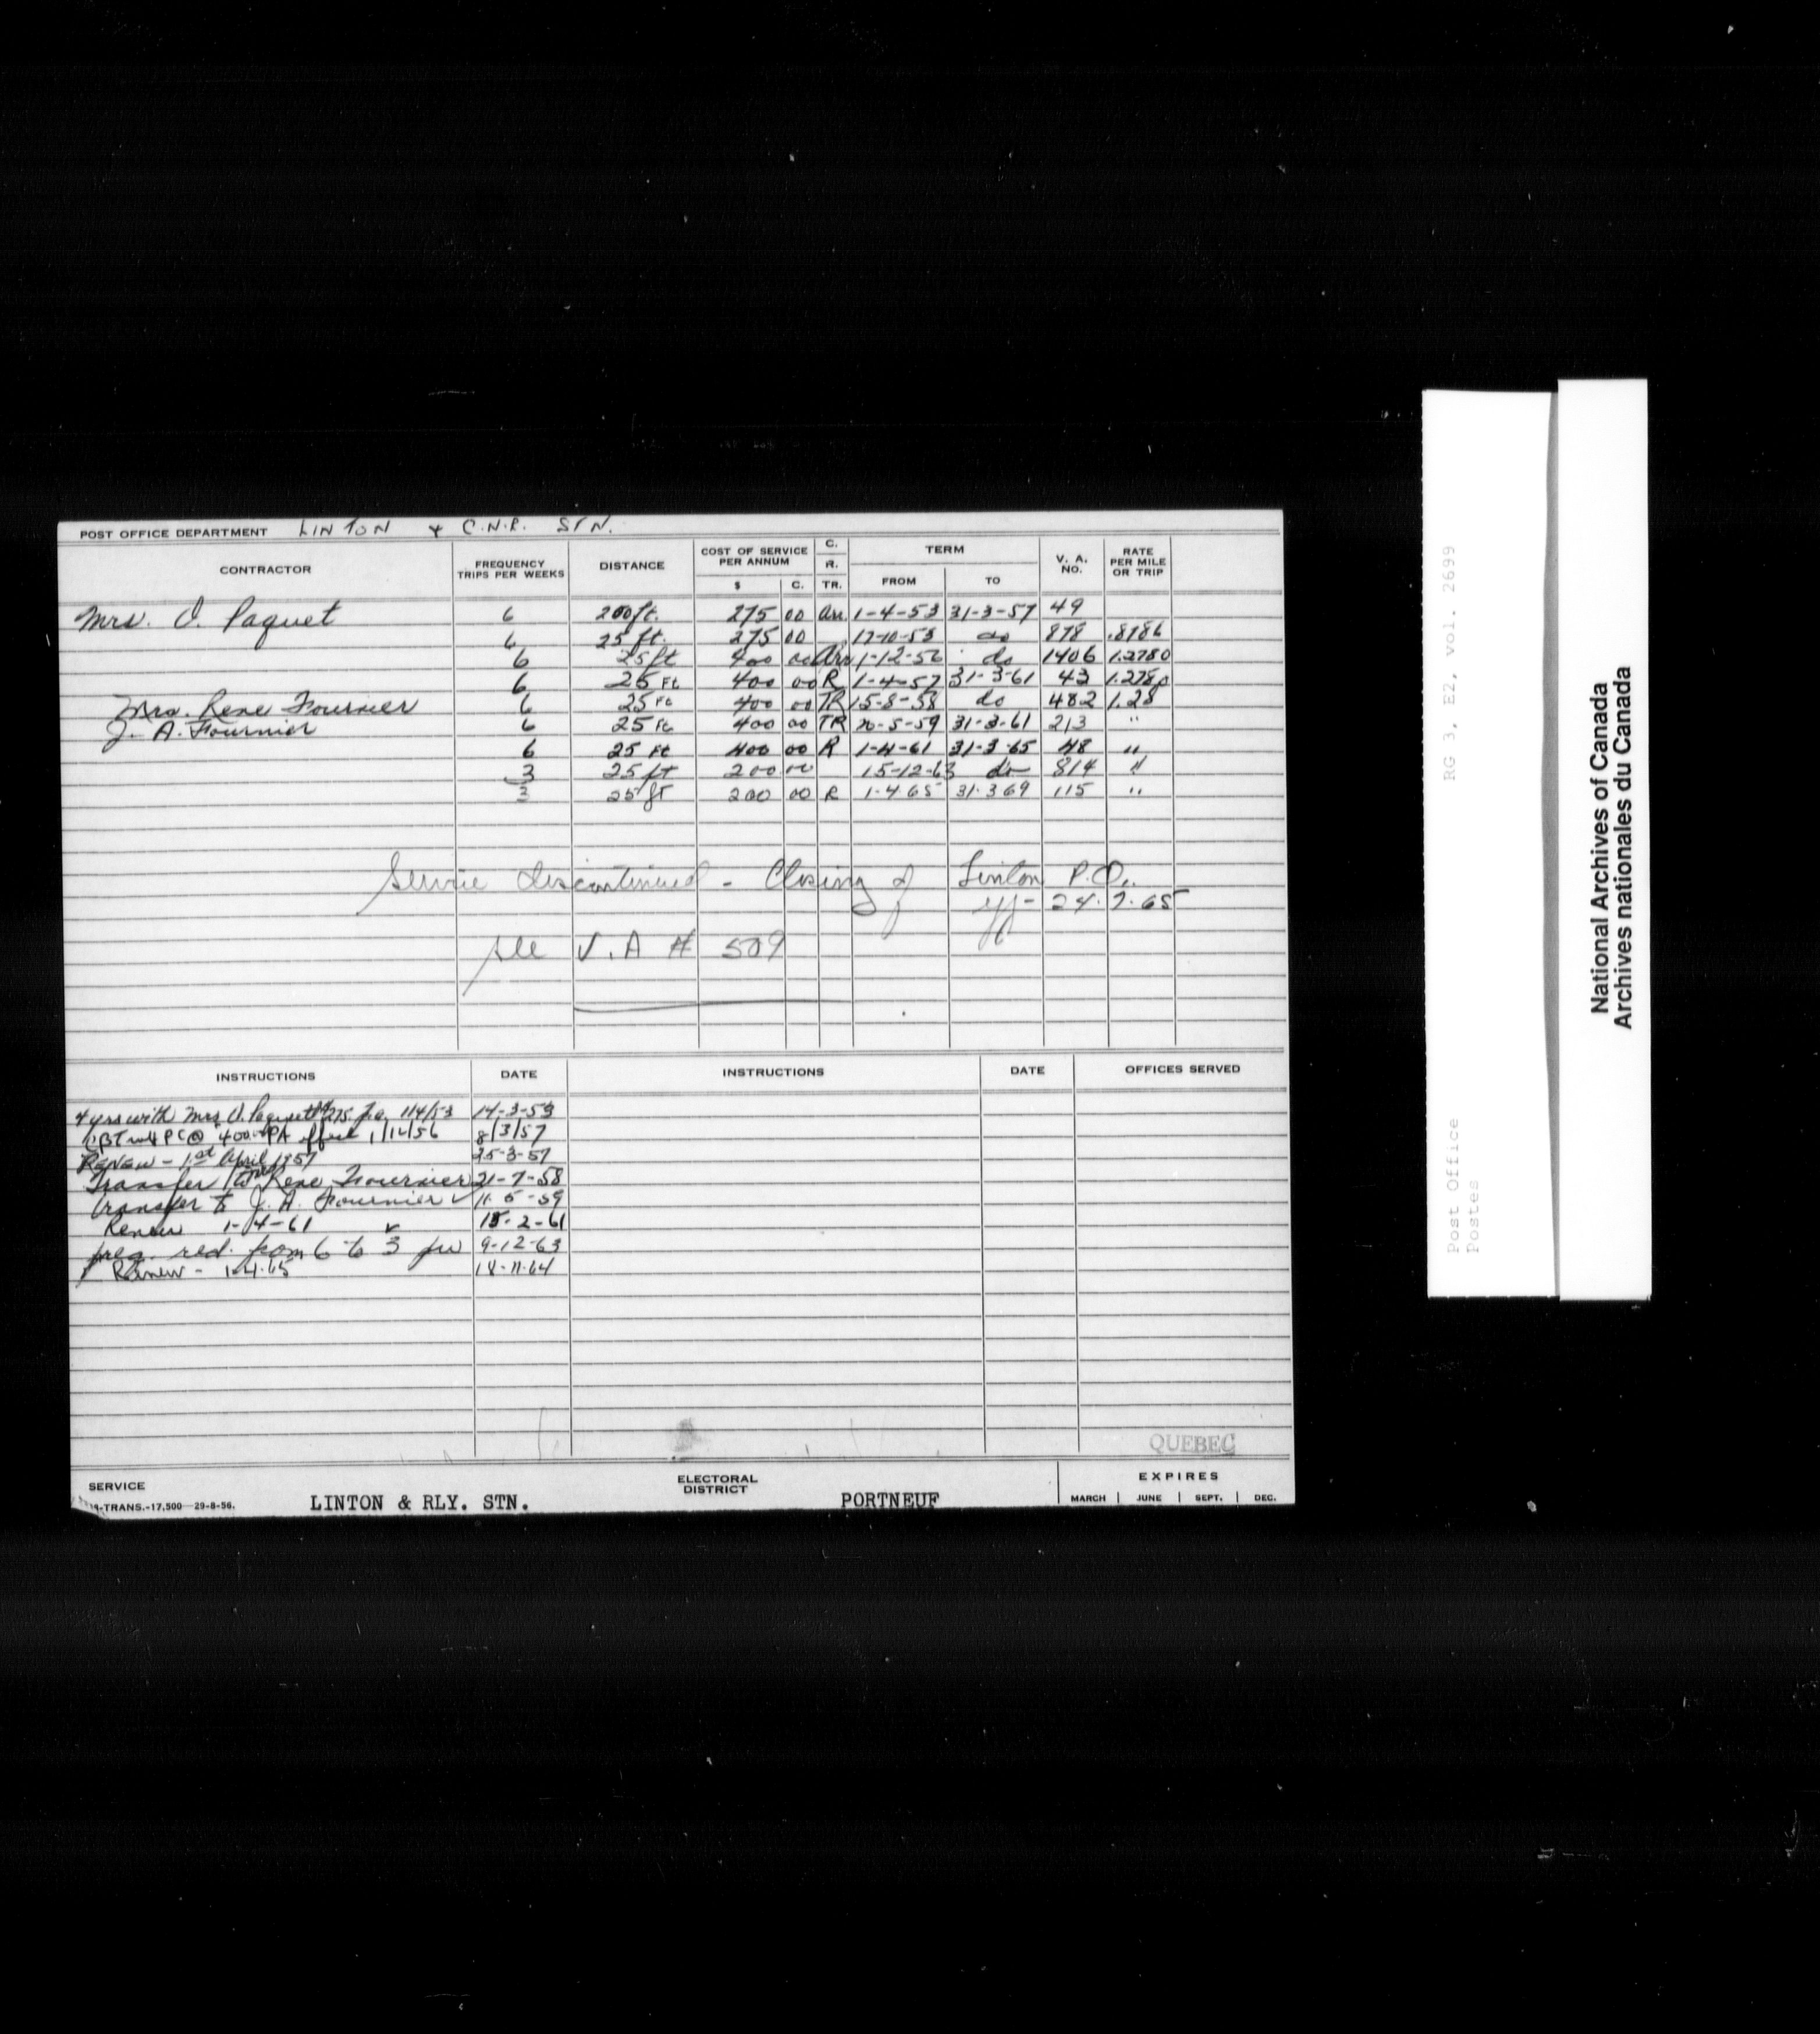 POST OFFICE DEPARTMENT LINTON & C.N.R. STN.
CONTRACTOR FREQUENCY TRIPS PER WEEKS DISTANCE COST OF SERVICE PER ANNUM $ C. C. R. TR. TERM FROM TO V. A. NO. RATE PER MILE OR TRIP
Mrs. O. Paquet 6 200 ft. 275 00 1-4-53 31-3-57 49
6 25 ft. 275 00 17-10-53 do 878 .8786
6 25 ft 400 00 1-12-56 do 1406 1.2780
6 25 Ft 400 00 R 1-4-57 31-3-61 43 1.2780
Mrs. Rene Fournier 6 25 Ft 400 00 TR 15-8-58 do 482 1.28
J. A. Fournier 6 25 Ft 400 00 TR 20-5-59 31-3-61 213 "
6 25 Ft 400 00 R 1-4-61 31-3-65 48 "
3 25 ft 200 00 15-12-63 do 814 "
3 25 ft 200 00 R 1-4-65 31-3-69 115 "
Service discontinued - Closing of Linton P.O.
eff- 24.7.65
see V.A # 509
INSTRUCTIONS DATE INSTRUCTIONS DATE OFFICES SERVED
4 yrs with Mrs O. Paquet @ 275. 1/4/53 14-3-53
PC @ 400.00 PA effect 1/12/56 8/3/57
RENEW - 1st April 1957 25-3-57
Transfer to Mrs Rene Fournier 21-7-58
transfer to J. A. Fournier ✓ 11-5-59
Renew 1-4-61 15-2-61
freq. red. from 6 to 3 pw 9-12-63
Renew - 1-4-65 18-11-64
QUEBEC
SERVICE LINTON & RLY. STN. ELECTORAL DISTRICT PORTNEUF EXPIRES
-TRANS.-17,500—29-8-56. MARCH JUNE SEPT. DEC.
RG 3, E2, vol. 2699
Post Office
Postes
National Archives of Canada
Archives nationales du Canada